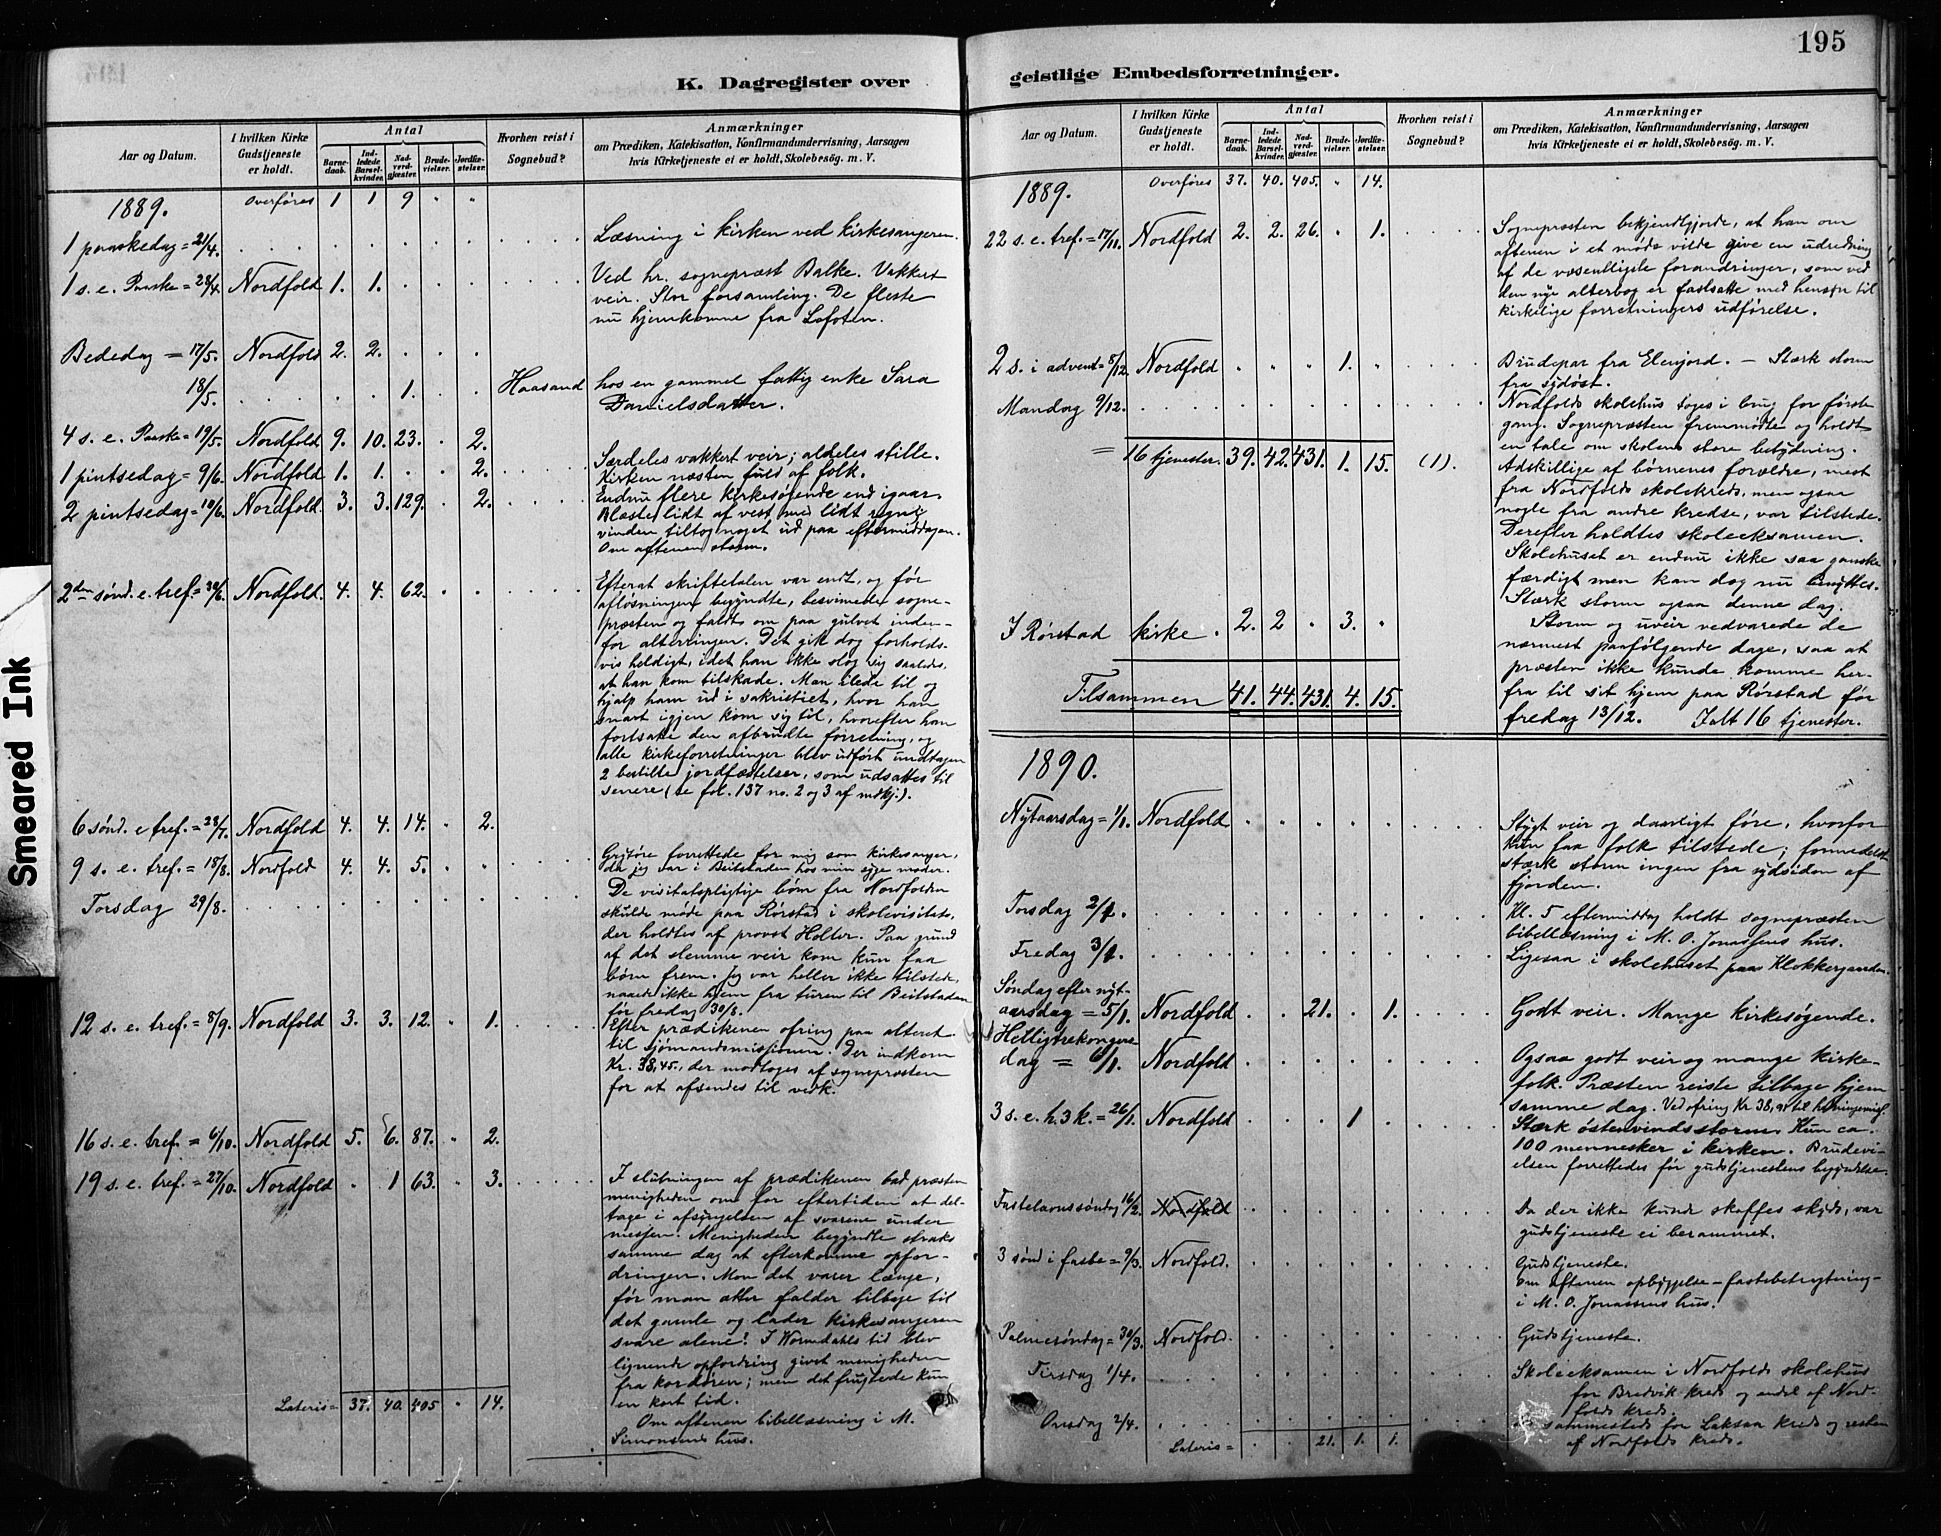 195
K. Dagregister over
geistlige Embedsforretninger.
Smeared Ink
Aar og Datum.
I hvilken Kirke Gudstjeneste er holdt.
Antal
Barne-daab.
Ind-ledede Barsel-kvinder.
Nad-verd-gjæster.
Brude-vielser.
Jordfæ-stelser.
Hvorhen reist i Sognebud?
Anmærkninger
om Prædiken, Katekisation, Konfirmandundervisning, Aarsagen
hvis Kirketjeneste ei er holdt, Skolebesøg. m. V.
1889. Overføres 1 1 9 " "
1 paaskedag = 21/4. Læsning i kirken ved kirkesangeren.
1 s. e. Paaske = 28/4. Nordfold 1. 1. Ved hr. sognepræst Balke. Vakkert
veir. Stor forsamling. De fleste
nu hjemkomne fra Lofoten.
Bededag = 17/5. Nordfold 2. 2.
18/5. 1. Haasand hos en gammel fattig enke Sara
Danielsdatter.
4 s. e. Paaske = 19/5. Nordfold 9. 10. 23. 2.
1 pintsedag = 9/6. Nordfold 1. 1. 2. Særdeles vakkert veir; aldeles stille.
Kirken næsten fuld af folk.
2 pintsedag = 10/6. Nordfold. 3. 3. 129. 2. Endnu flere kirkesøgende end igaar.
Blæste lidt af vest med lidt regn;
vinden tiltog noget ud paa eftermiddagen.
Om aftenen storm.
2den sønd. e. tref. = 30/6. Nordfold. 4. 4. 62. Efterat skriftetalen var endt, og før
afløsningen begyndte, besvimede sogne-
præsten og faldt om paa gulvet inden-
for alterringen. Det gik dog forholds-
vis heldigt, idet han ikke slog sig saaledes,
at han kom tilskade. Man ilede til og
hjalp ham ud i sakristiet, hvor han
snart igjen kom sig til, hvorefter han
fortsatte den afbrudte forretning, og
alle kirkeforretninger blev udført undtagen
2 bestilte jordfæstelser, som udsattes til
senere (se fol. 137 no. 2 og 3 af mdkj.).
6 sønd. e tref. = 28/7. Nordfold 4. 4. 14. 2.
9 s. e. tref. = 18/8. Nordfold 4. 4. 5. " Grytøre forrettede for mig som kirkesanger,
da jeg var i Beitstaden hos min syge moder.
Torsdag 29/8. De visitatspligtige børn fra Nordfolden
skulde møde paa Rørstad i skolevisitats,
der holdtes af provst Holter. Paa grund
af det slemme veir kom kun faa
børn frem. Jeg var heller ikke tilstede,
naaede ikke hjem fra turen til Beitstaden
før fredag 30/8.
12 s. e. tref. = 8/9. Nordfold 3. 3. 12. " 1. Efter prædikenen ofring paa alteret
til sjømandsmissionen. Der indkom
Kr. 38,45., der modtoges af sognepræsten
for at afsendes til vedk.
16 s. e. tref. = 6/10. Nordfold 5. 6. 87. " 2.
19 s. e. tref. = 27/10. Nordfold " 1 63. " 3. I slutningen af prædikenen bad præsten
menigheden om for eftertiden at del-
tage i afsyngelsen af svarene under
messen. Menigheden begyndte straks
samme dag at efterkomme opfor-
dringen. Mon det varer længe,
før man atter falder tilbage til
det gamle og lader kirkesangeren
svare alene? I Wormdahls tid blev
lignende opfordring givet menigheden
fra kordøren; men det frugtede kun
en kort tid.
Om aftenen bibellæsning i M.
Simonsens hus.
Lateris = 37. 40. 405 " 14.
Aar og Datum.
I hvilken Kirke Gudstjeneste er holdt.
Antal
Barne-daab.
Ind-ledede Barsel-kvinder.
Nad-verd-gjæster.
Brude-vielser.
Jordfæ-stelser.
Hvorhen reist i Sognebud?
Anmærkninger
om Prædiken, Katekisation, Konfirmandundervisning, Aarsagen
hvis Kirketjeneste ei er holdt, Skolebesøg. m. V.
1889. Overføres 37. 40. 405. " 14.
22 s. e. tref. = 17/11. Nordfold 2. 2. 26. " 1. Sognepræsten bekjendtgjorde, at han om
aftenen i et møde vilde give en udredning
af de væsentligste forandringer, som ved
den nye alterbog er fastsatte med hensyn til
kirkelige forretningers udførelse.
2 s. i advent = 8/12. Nordfold " " " 1. " Brudepar fra Elvefjord. – Stærk storm
fra sydøst.
Mandag 9/12. Nordfolds skolehus toges i brug for første
gang. Sognepræsten fremmødte og holdt
en tale om skolens store betydning.
= 16 tjenester. 39. 42. 431. 1. 15. (1). Adskillige af børnenes forældre, mest
fra Nordfolds skolekreds, men ogsaa
nogle fra andre kredse, var tilstede.
Derefter holdtes skoleeksamen.
Skolehuset er endnu ikke saa ganske
færdigt men kan dog nu benyttes.
Stærk storm ogsaa denne dag.
I Rørstad kirke. 2. 2 " 3. " Storm og uveir vedvarede de
nærmest paafølgende dage, saa at
præsten ikke kunde komme her-
fra til sit hjem paa Rørstad før
Tilsammen 41. 44. 431. 4. 15. fredag 13/12. Ialt 16 tjenester.
1890.
Nytaarsdag = 1/1. Nordfold Stygt veir og daarligt føre, hvorfor
kun faa folk tilstede; formedelst
stærk storm ingen fra sydsiden af
fjorden.
Torsdag 2/1. Kl. 5 eftermiddag holdt sognepræsten
bibellæsning i M. O. Jonassens hus.
Fredag 3/1. Ligesaa i skolehuset paa Klokkergaarden.
Søndag efter nyt-
aarsdag = 5/1. Nordfold 21. 1. Godt veir. Mange kirkesøgende.
Helligtrekonger-
dag = 6/1. Nordfold Ogsaa godt veir og mange kirke-
folk. Præsten reiste tilbage hjem
samme dag. Ved ofring Kr 38,91 til
3 s. e. h. 3 k. = 26/1. Nordfold 1 Stærk østenvindsstorm. Kun ca.
100 mennesker i kirken. Brudevi-
elsen forrettedes før gudstjenestens begyndelse.
Fastelavnssøndag 16/2. Nordfold Da der ikke kunde skaffes skyds, var
gudstjeneste ei berammet.
3 sønd i faste = 9/3. Nordfold. Gudstjeneste.
Om aftenen opbyggelse – fastebetragtning –
i M. O. Jonassens hus.
Palmesøndag = 30/3. Nordfold. Gudstjeneste.
Tirsdag 1/4. Skoleeksamen i Nordfolds skolehus
for Bredvik kreds og endel af Nord-
folds kreds.
Onsdag 2/4. sammesteds for Laksaa kreds og resten
af Nordfolds kreds.
Lateris = 21. 1. 1.